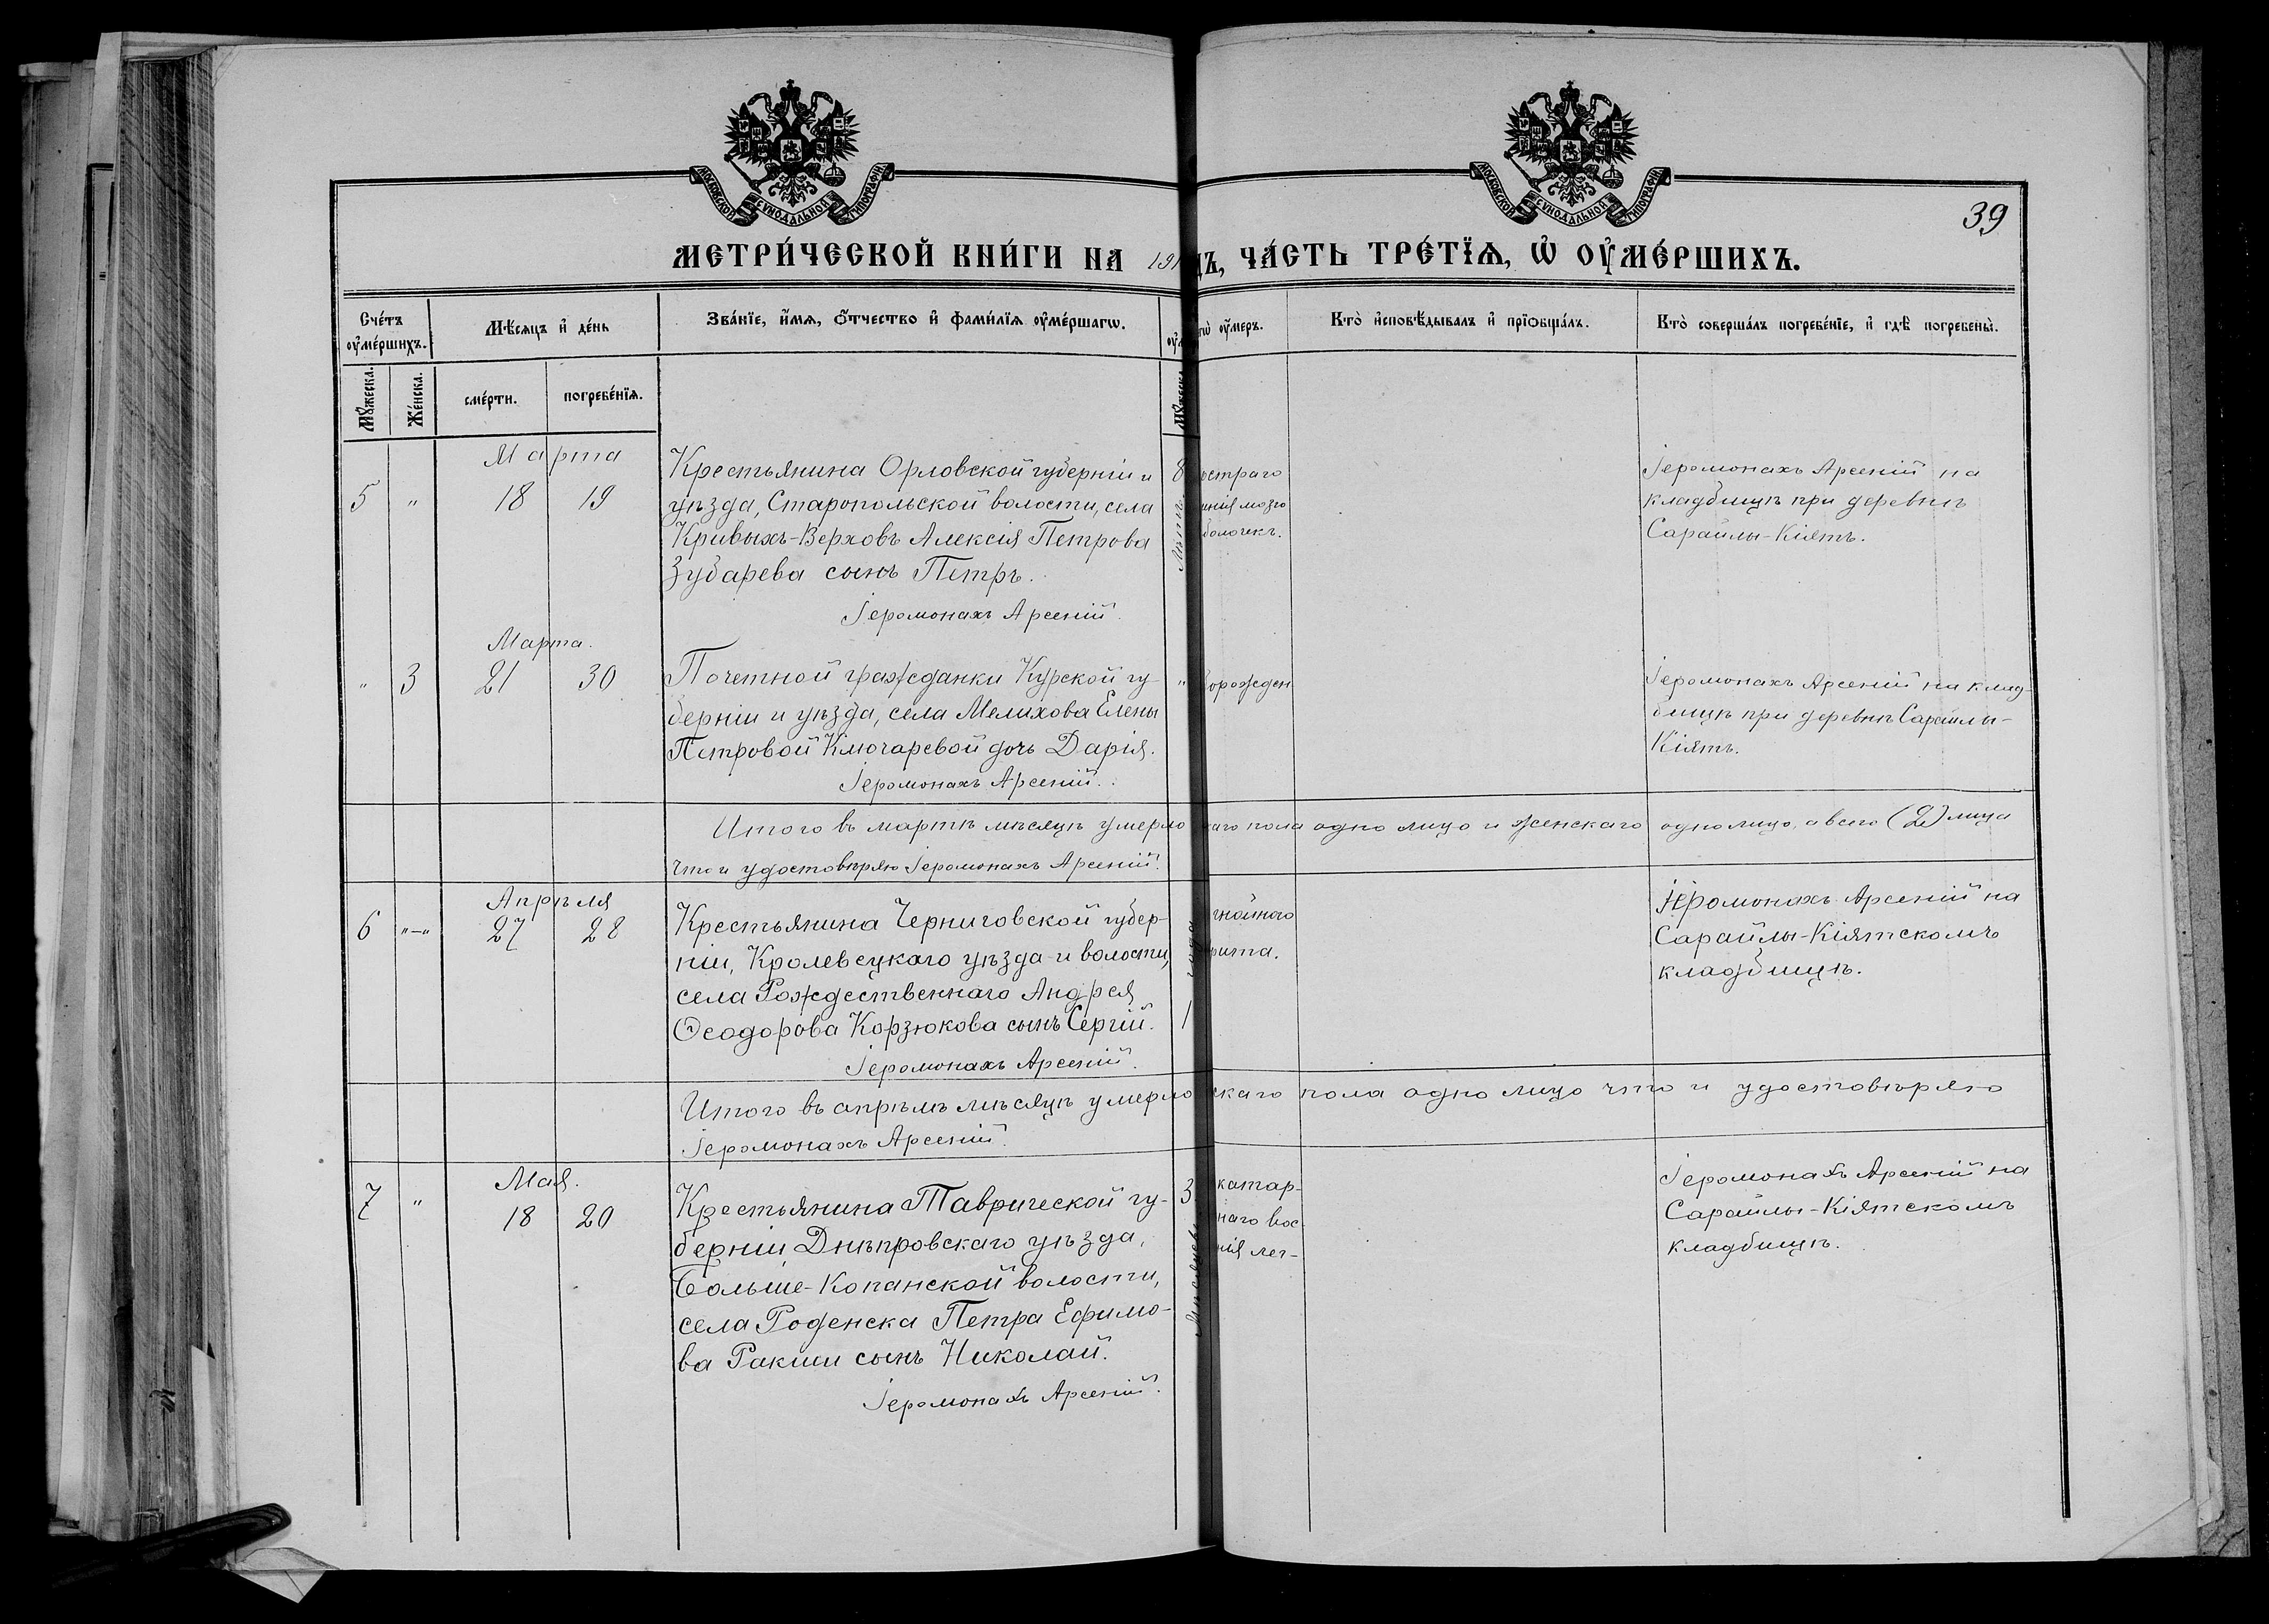 МОСКОВСКОЙ СѴНОДАЛЬНОЙ ТИПОГРАФІИ
МОСКОВСКОЙ СѴНОДАЛЬНОЙ ТИПОГРАФІИ
39
МЕТРИ́ЧЕСКОЙ КНИ́ГИ НА 191
Ъ, ЧА́СТЬ ТРЕ́ТЇѦ, Ѡ҆ ОУ҆МЕ́РШИХЪ.
Сче́тъ оу҆ме́ршихъ.
Мѣ́сяцъ и҆ де́нь
Зва́нїе, и҆́мѧ, ѻ҆́тчество и҆ фами́лїѧ оу҆ме́ршагѡ.
оу҆мeръ.
Кто̀ и҆сповѣ́дывалъ и҆ прїѻбща́лъ.
Кто̀ соверша́лъ погребе́нїе, и҆ гдѣ̀ погребены̀.
Мꙋ́жеска.
Же́нска.
сме́рти.
погребе́нїѧ.
Мꙋ́жеска
Марта
5 " 18 19
Крестьянина Орловской губерніи и
уѣзда, Старопольской волости, села
Кривыхъ-Верховъ Алексія Петрова
Зубарева сынъ Петръ.
Іеромонахъ Арсеній.
8
остраго
нія мозго
болочекъ.
Іеромонахъ Арсеній на
кладбищѣ при деревнѣ
Сарайлы-Кіятъ.
Марта.
" 3 21 30
Почетной гражданки Курской гу-
берніи и уѣзда, села Мелихова Елены
Петровой Ключаревой дочь Дарія.
Іеромонахъ Арсеній.
"
ворожден
Іеромонахъ Арсеній на клад-
бищѣ при деревнѣ Сарайлы-
Кіятъ.
Итого въ мартѣ мѣсяцѣ умерло каго пола одно лицо и женскаго одно лицо, а всего (2) лица
что и удостовѣряю Іеромонахъ Арсеній.
Апрѣля
6 "-" 27 28
Крестьянина Черниговской губер-
ніи, Кролевецкаго уѣзда и волости,
села Рождественнаго Андрея
Ѳеодорова Корзюкова сынъ Сергій.
Іеромонахъ Арсеній.
1
гнойнаго
рита.
Іеромонахъ Арсеній на
Сарайлы-Кіятскомъ
кладбищѣ.
Итого въ апрѣлѣ мѣсяцѣ умерло скаго пола одно лицо что и удостовѣряю
Іеромонахъ Арсеній.
Мая.
7 " 18 20
Крестьянина Таврической гу-
берніи Днѣпровскаго уѣзда,
Больше-Копанской волости,
села Роденска Петра Ефимо-
ва Ракши сынъ Николай.
Іеромонахъ Арсеній.
3
катар-
наго вос
нія лег-
Іеромонахъ Арсеній на
Сарайлы-Кіятскомъ
кладбищѣ.